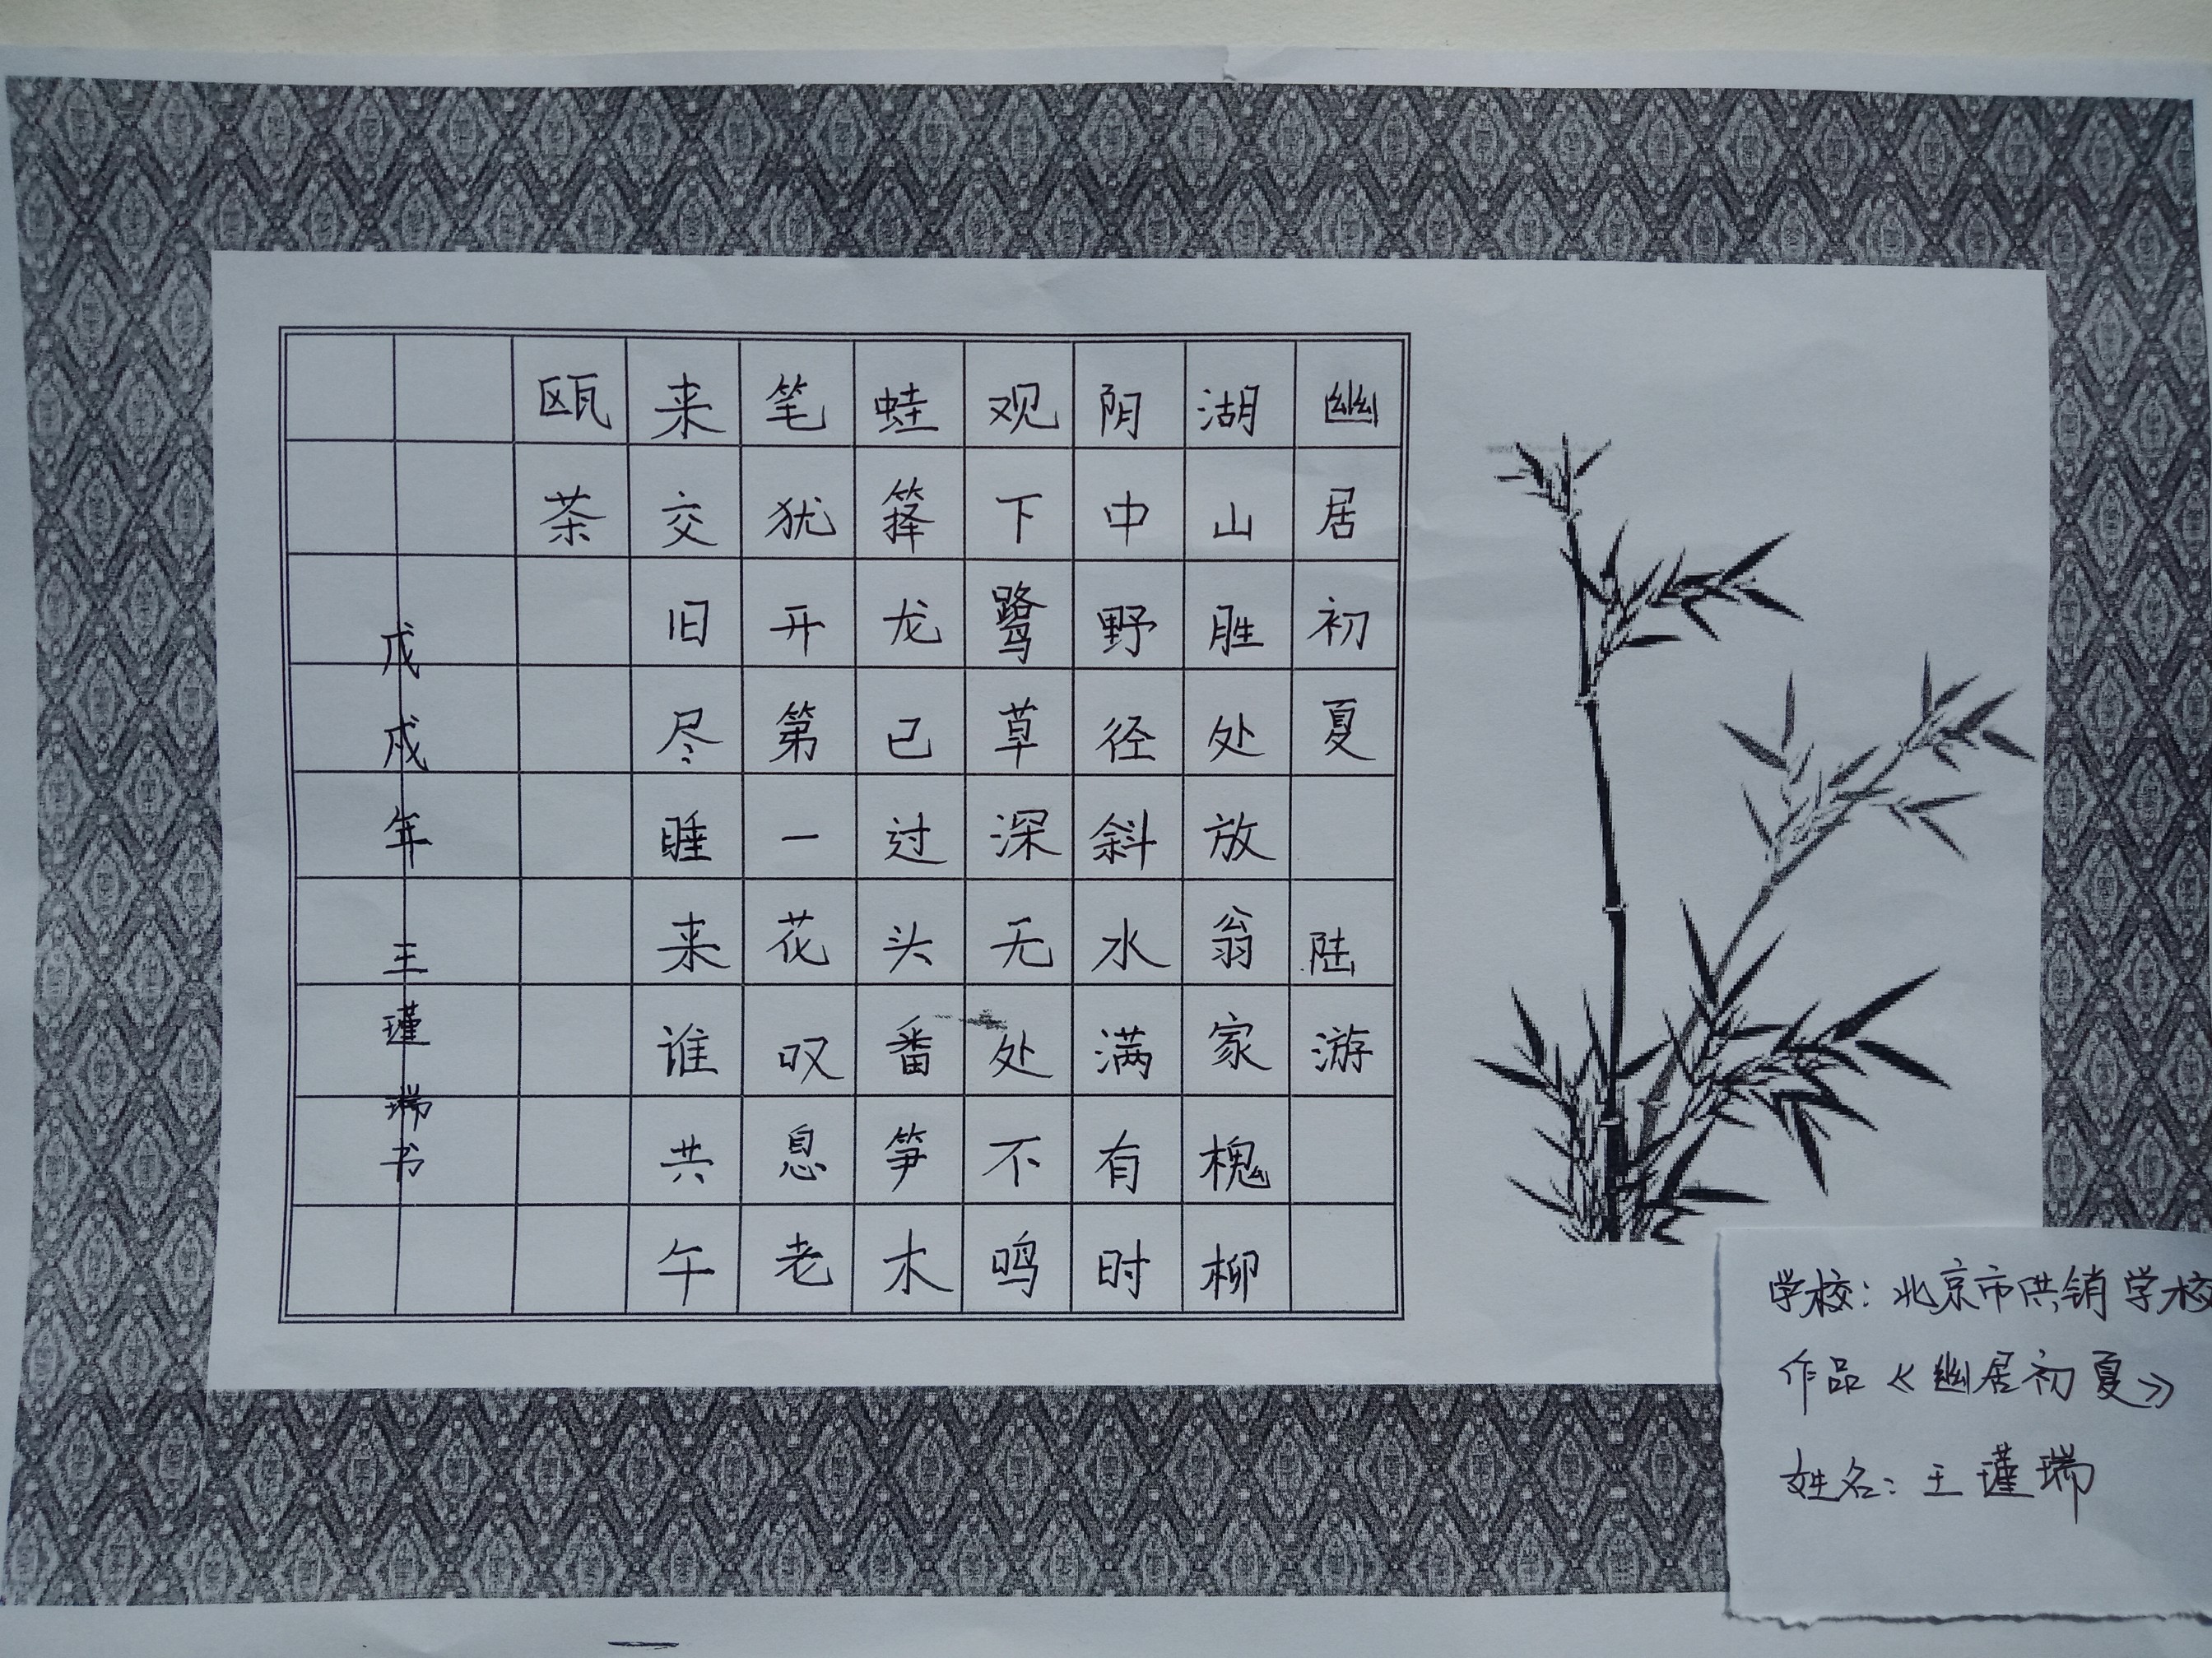 幽居初夏 陆游
湖山胜处放翁家槐柳
阴中野径斜水满有时
观下鹭草深无处不鸣
蛙箨龙已过头番笋木
笔犹开第一花叹息老
来交旧尽睡来谁共午
瓯茶
戊戌年 王瑾瑞书
学校：北京市供销学校
作品《幽居初夏》
姓名：王瑾瑞